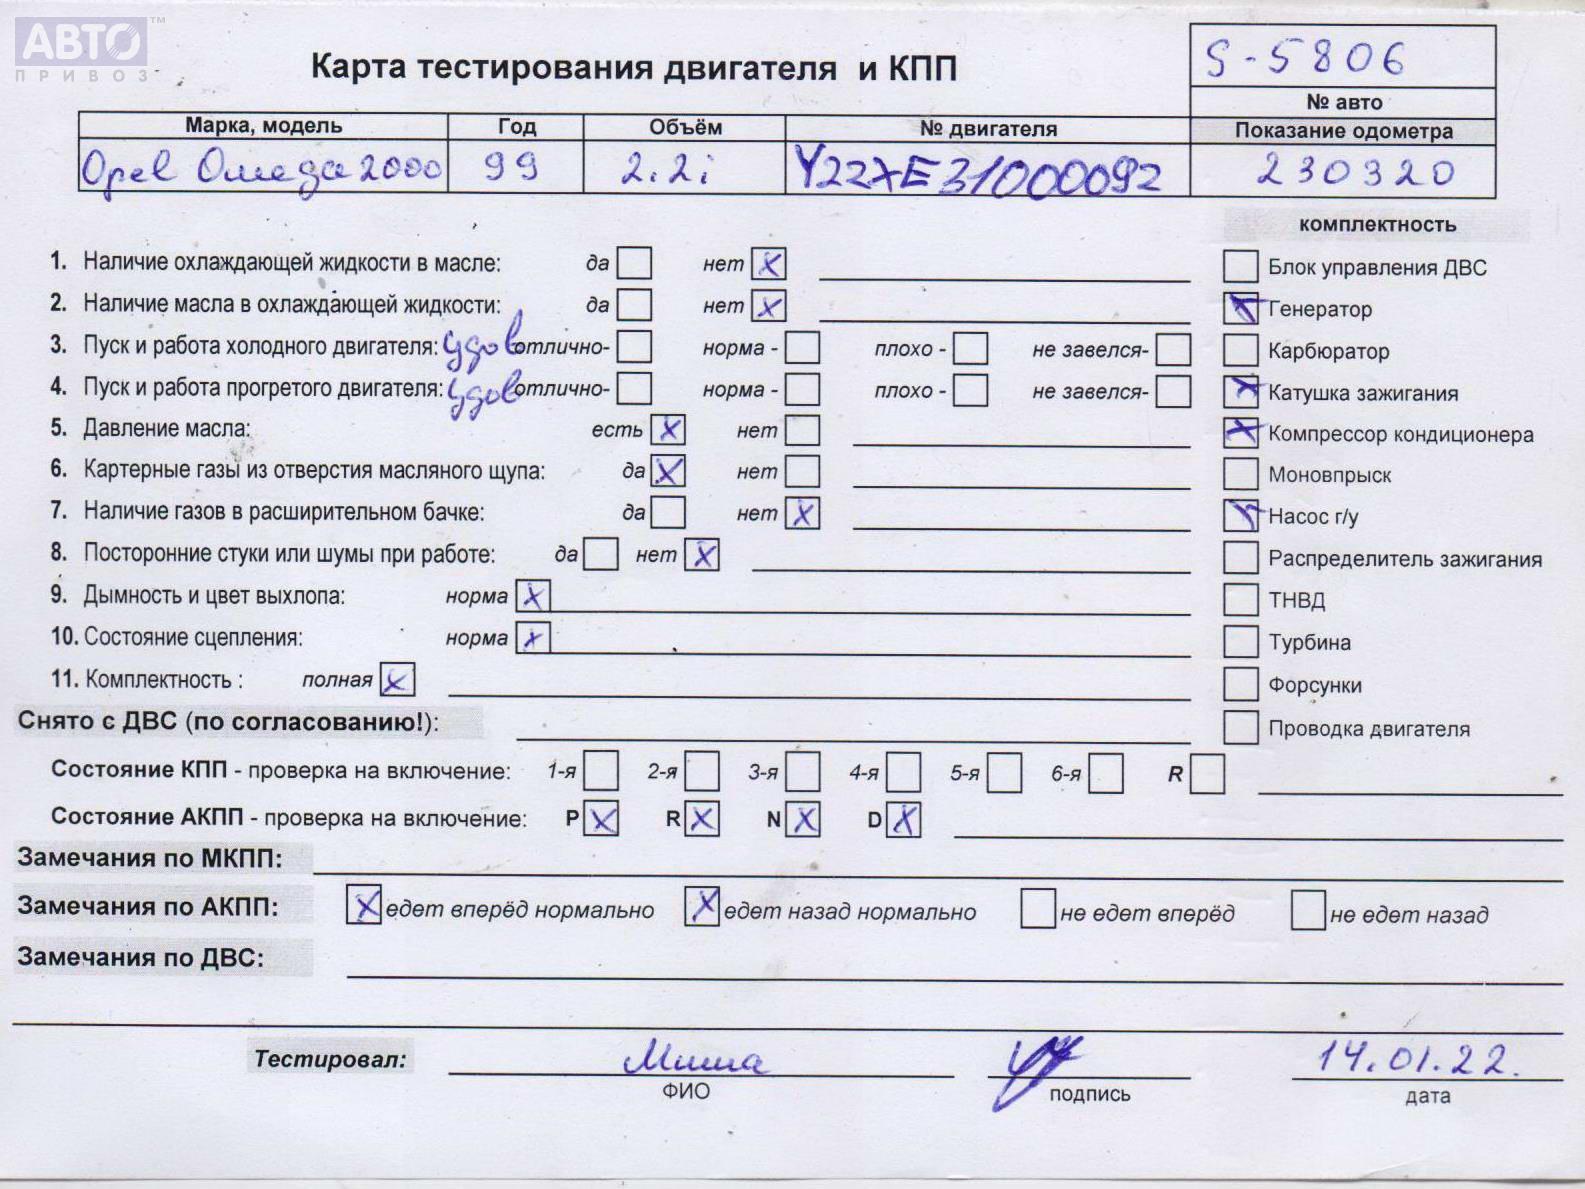 АВТО ™
ПРИВОЗ
Карта тестирования двигателя и КПП
S-5806
№ авто
Марка, модель Год Объём № двигателя Показание одометра
Opel Омега 2000 99 2.2i Y22XE31000092 230320
комплектность
1. Наличие охлаждающей жидкости в масле: да нет X
Блок управления ДВС
2. Наличие масла в охлаждающей жидкости: да нет X
Генератор
3. Пуск и работа холодного двигателя: удов отлично- норма - плохо - не завелся-
Карбюратор
4. Пуск и работа прогретого двигателя: удов отлично- норма - плохо - не завелся-
Катушка зажигания
5. Давление масла: есть X нет
Компрессор кондиционера
6. Картерные газы из отверстия масляного щупа: да X нет
Моновпрыск
7. Наличие газов в расширительном бачке: да нет X
Насос г/у
8. Посторонние стуки или шумы при работе: да нет X
Распределитель зажигания
9. Дымность и цвет выхлопа: норма X
ТНВД
10. Состояние сцепления: норма X
Турбина
11. Комплектность : полная X
Форсунки
Снято с ДВС (по согласованию!):
Проводка двигателя
Состояние КПП - проверка на включение: 1-я 2-я 3-я 4-я 5-я 6-я R
Состояние АКПП - проверка на включение: P X R X N X D X
Замечания по МКПП:
Замечания по АКПП: X едет вперёд нормально X едет назад нормально не едет вперёд не едет назад
Замечания по ДВС:
Тестировал: Миша 14.01.22.
ФИО подпись дата